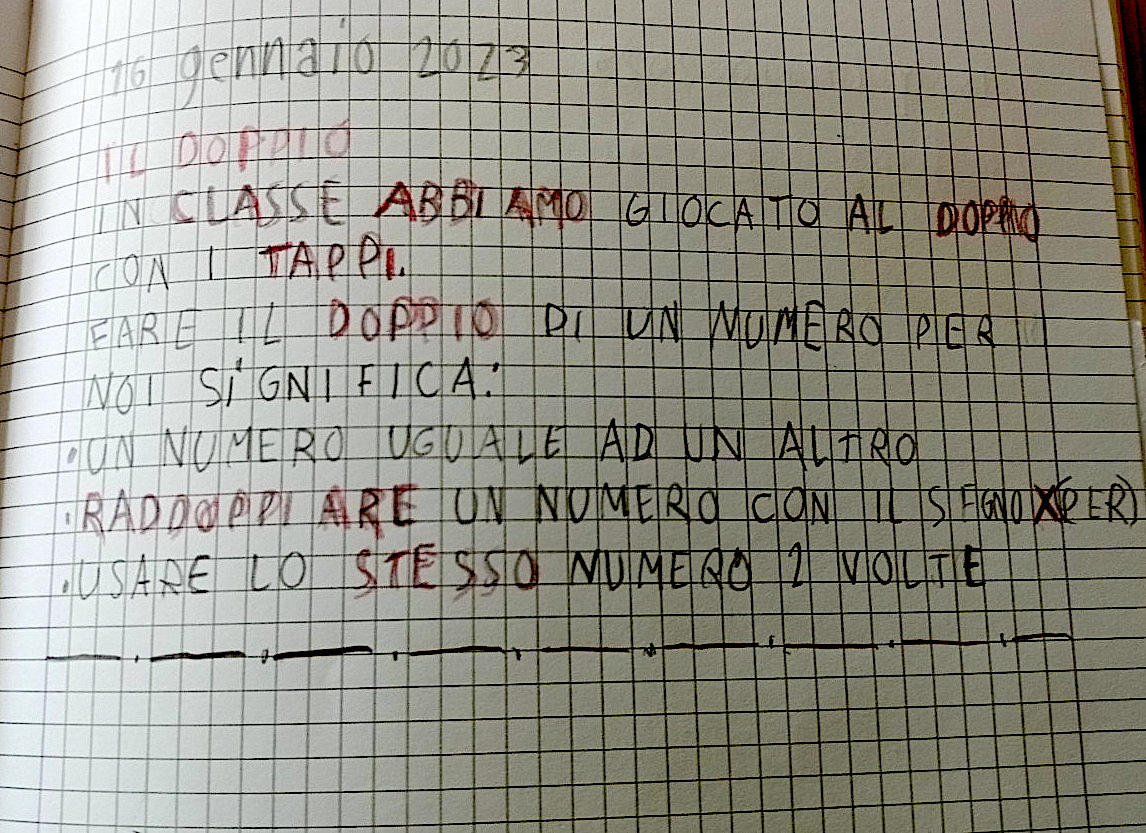 16 gennaio 2023
IL DOPPIO
IN CLASSE ABBIAMO GIOCATO AL DOPPIO
CON I TAPPI.
FARE IL DOPPIO DI UN NUMERO PER
NOI SIGNIFICA:
•UN NUMERO UGUALE AD UN ALTRO
•RADDOPPIARE UN NUMERO CON IL SEGNO X(PER)
•USARE LO STESSO NUMERO 2 VOLTE